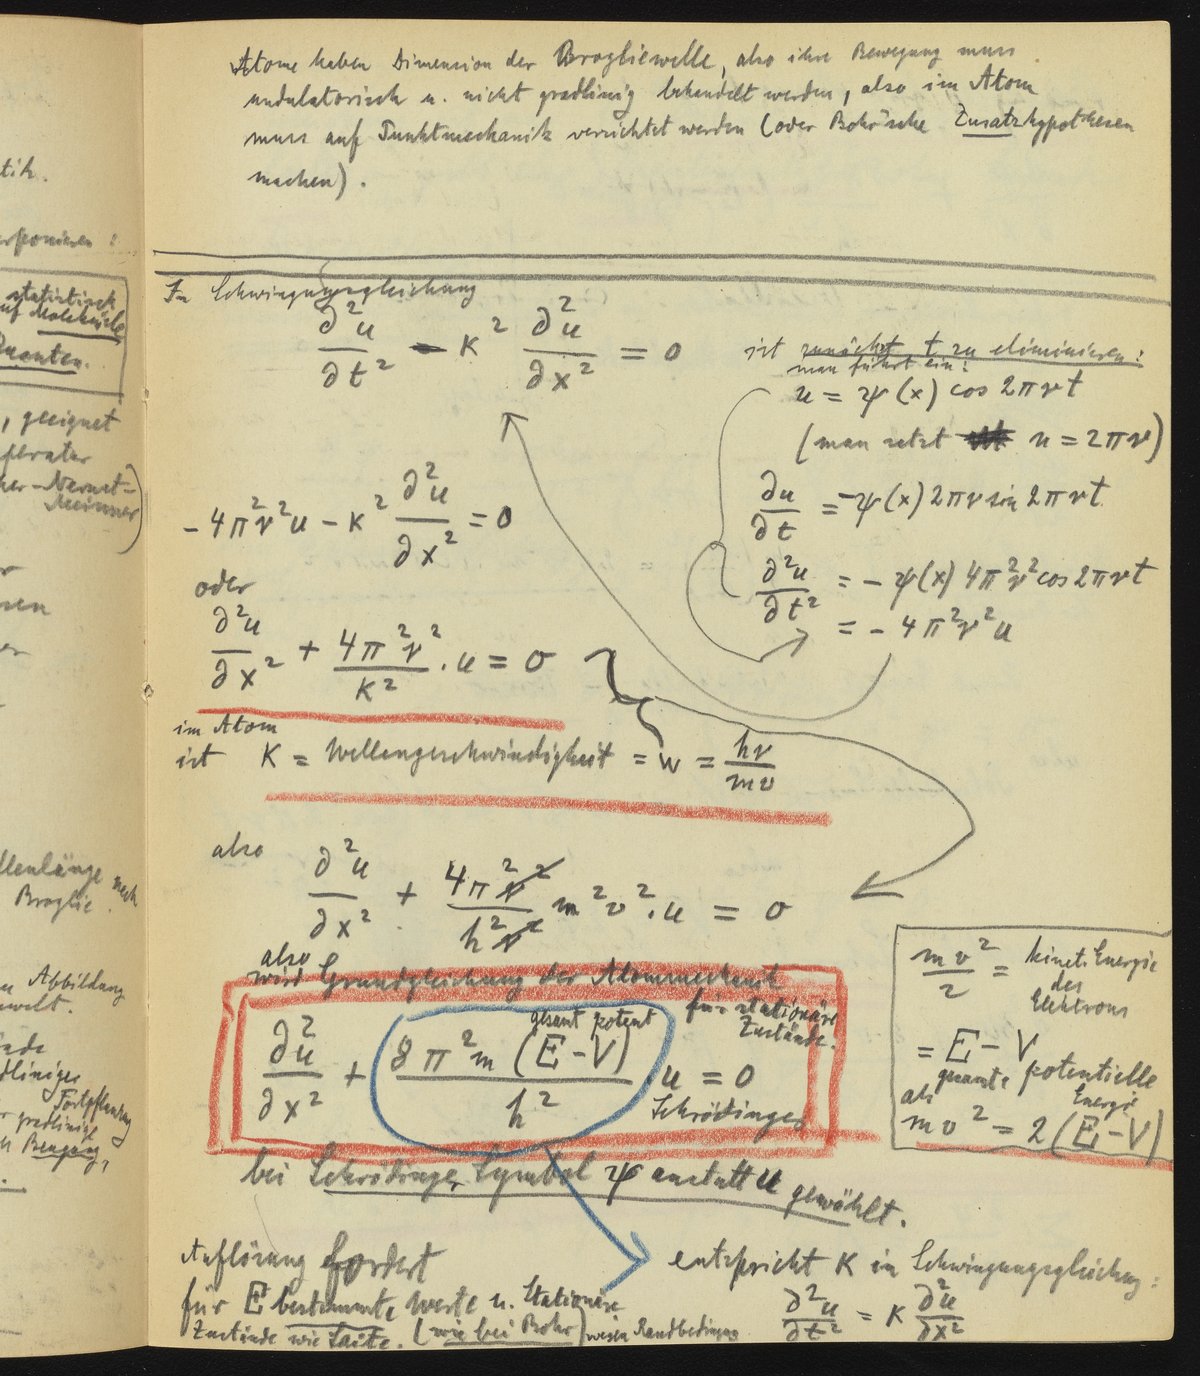 Atome haben Dimension der Brogliewelle, also ihre Bewegung muss
undulatorisch u. nicht gradlinig behandelt werden, also im Atom
muss auf Punktmechanik verzichtet werden (oder Bohr'sche Zusatzhypothesen
machen).
tik.
erponieren :
statistisch
auf Moleküle
Quanten.
, geeignet
Nernst-
llenlänge nach
Broglie.
Abbildung
welt.
dliniger
Fortpflanzung
gradlinige
Bewegung,
In Schwingungsgleichung
∂²u/∂t² - K² ∂²u/∂x² = 0
ist zunächst t zu eliminieren:
man führt ein:
u = ψ(x) cos 2πνt
(man setzt n = 2πν)
∂u/∂t = -ψ(x) 2πν sin 2πνt
∂²u/∂t² = - ψ(x) 4π²ν² cos 2πνt
= - 4π²ν²u
- 4π²ν²u - K² ∂²u/∂x² = 0
oder
∂²u/∂x² + 4π²ν²/K² . u = 0
im Atom
ist K = Wellengeschwindigkeit = w = hν/mv
also ∂²u/∂x² + 4π²ν²/h²ν² m²v². u = 0
also
wird Grundgleichung der Atommechanik
für stationäre
Zustände.
gesamt potent
∂²u/∂x² + 8π²m (E-V)/h² u = 0
Schrödinger
mv²/2 = kinet. Energie
des
Elektrons
= E - V
gesamte potentielle
Energie
als
mv² = 2 (E-V)
bei Schrödinger Symbol ψ anstatt u gewählt.
Auflösung fordert
für E bestimmte Werte u. Stationäre
Zustände wie Saite. (wie bei Bohr) wegen Randbedingung
entspricht K in Schwingungsgleichung:
∂²u/∂t² = K ∂²u/∂x²